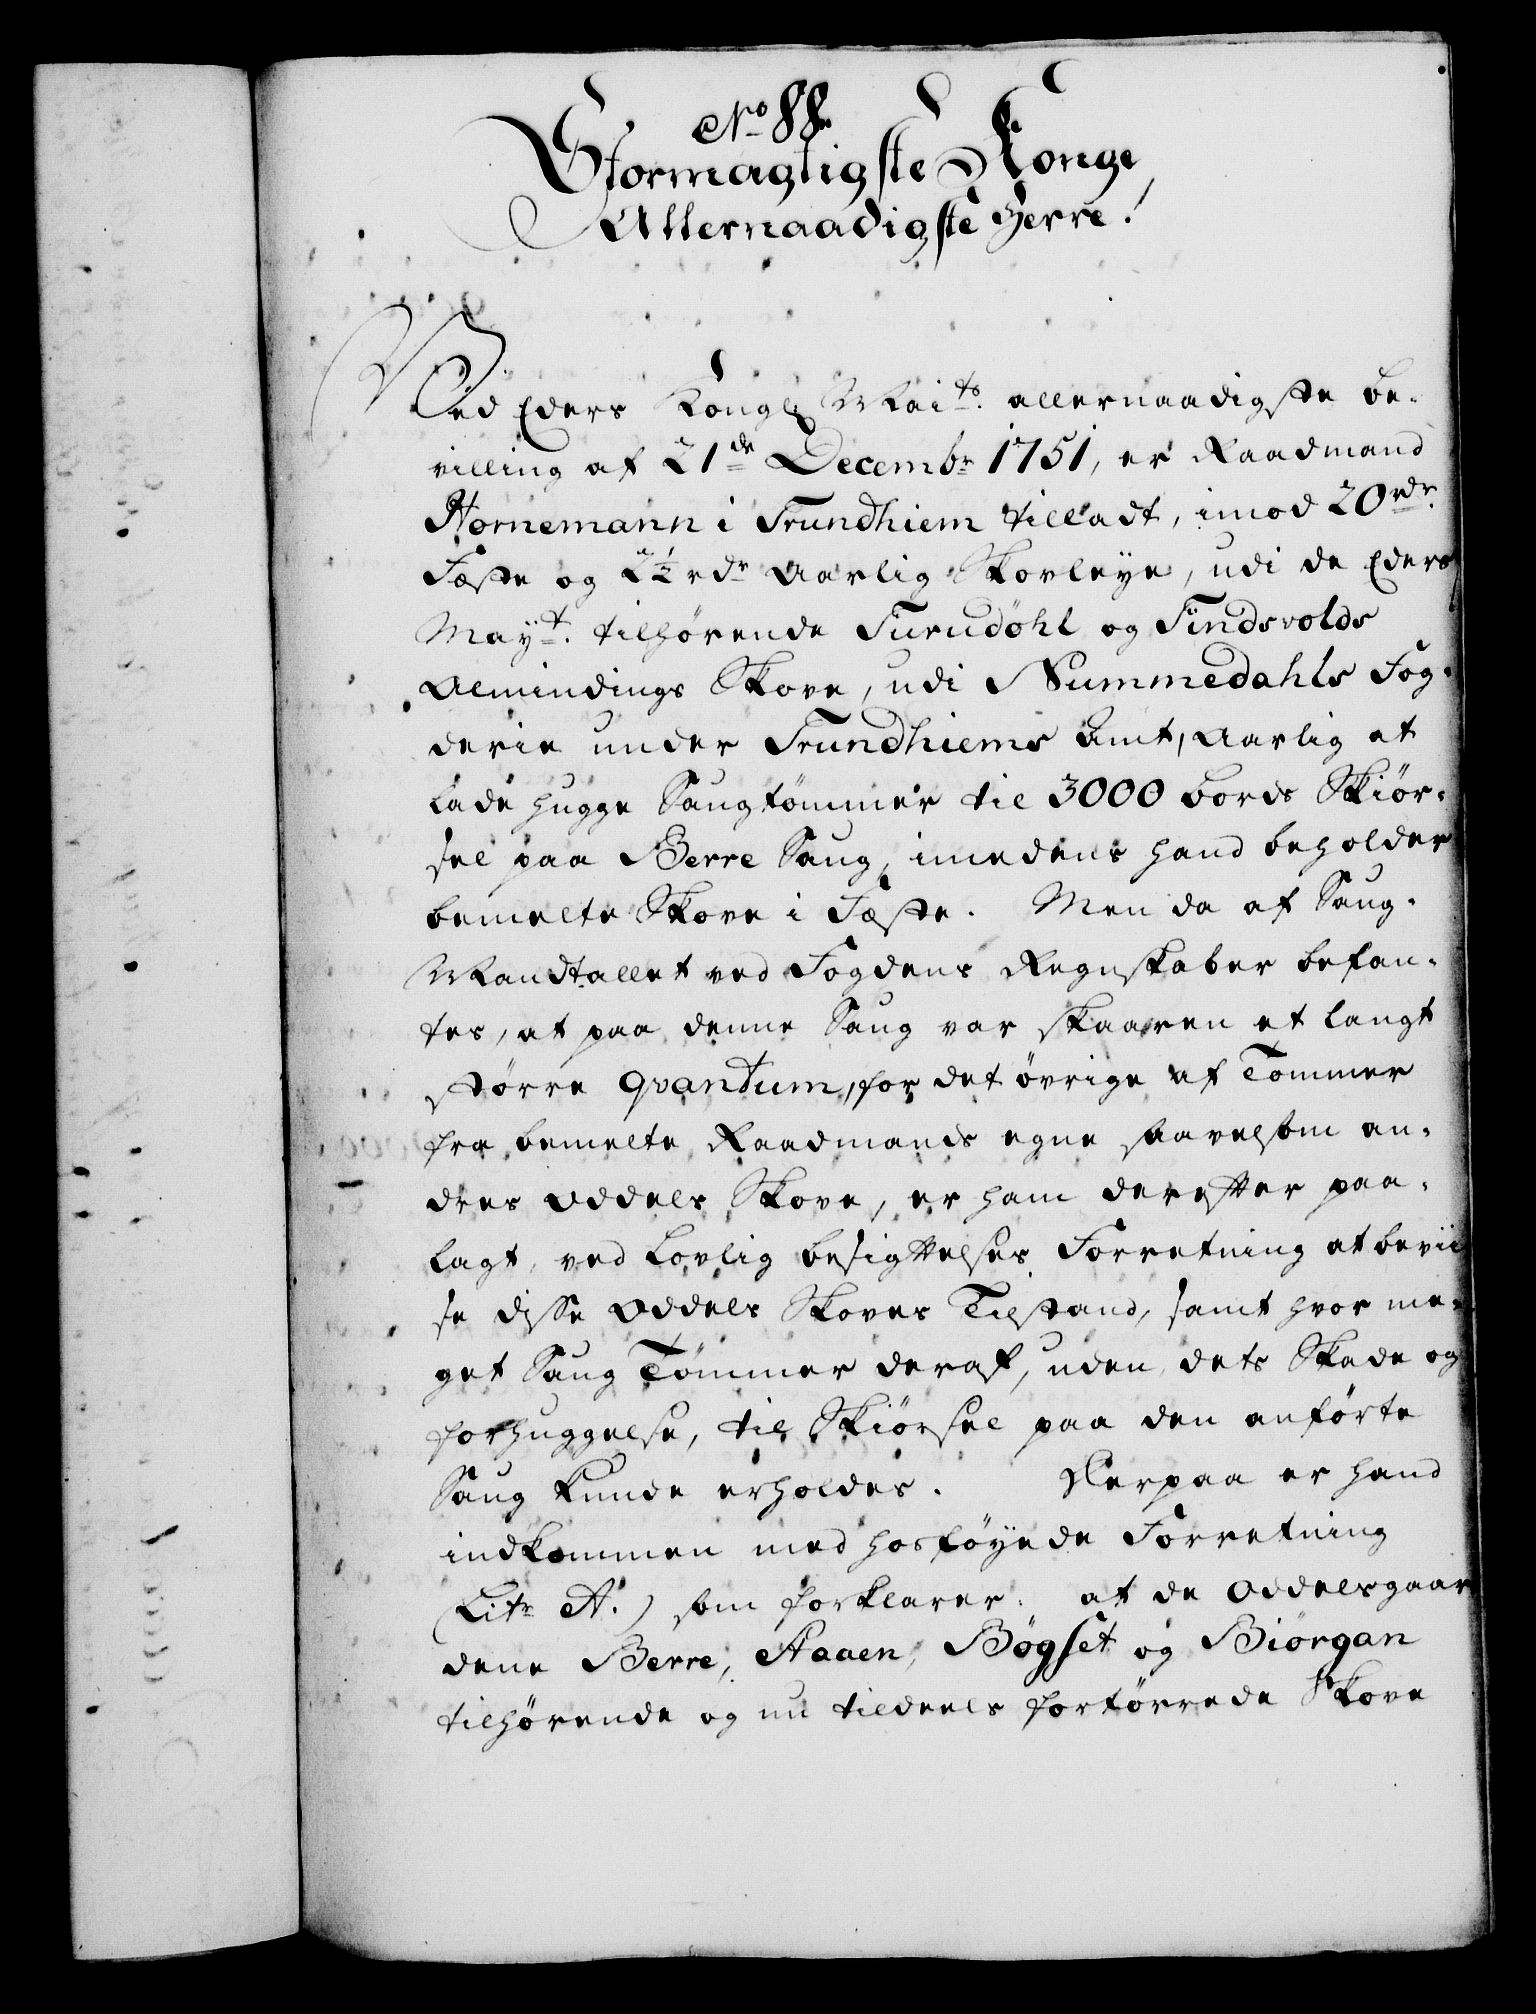 No 88.
Stormagtigste Konge
Allernaadigste Herre!
Ved Eders Kongl. Maits. allernaadigste be-
villing af 21de Decembr 1751, er Raadmand
Hornemann i Trundhiem tilladt, imod 20 rdr.
Fæste og 2½ rdr aarlig Skovleye, udi de Eders
Mayt. tilhørende Furudøhl og Findsvolds
Almindings Skove, udi Nummedahls Fog-
derie under Trundhiems Amt, aarlig at
lade hugge Saugtømmer til 3000 bords Skiør-
sel paa Berre Saug, imedens hand beholder
bemelte Skove i Fæste. Men da af Saug-
Mandtallet ved Fogdens Regnskaber befan-
tes, at paa denne Saug var skaaren et langt
større qvantum, for det øvrige af Tømmer
fra bemelte Raadmands egne saavelsom an-
dres Oddels Skove, er ham derefter paa-
lagt, ved lovlig besigtelses Forretning at bevii-
se disse Oddels Skoves Tilstand, samt hvor me-
get Saug Tømmer deraf, uden dets Skade og
forhuggelse, til Skiørsel paa den anførte
Saug kunde erholdes. Herpaa er hand
indkommen med hosføyede Forretning
(Litr A.) som forklarer: at de Oddelsgaar-
dene Berre, Aaaen, Bøgset og Biørgan
tilhørende og nu tildeels fortørrede Skove